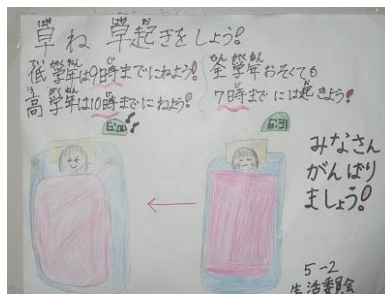 草ね 草起きをしよう!
低学年は9時までにねよう!
高学年は10時までにねよう!
全学年おそくても
7時までには起きよう!
6:00
6:31
みなさん
がんばり
ましょう!
5-2
生活委員会